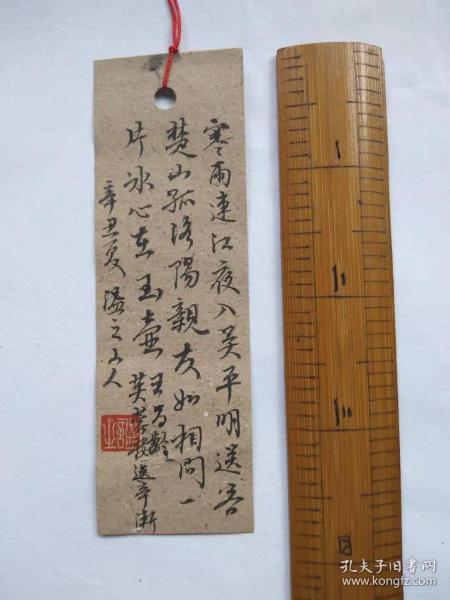 寒雨连江夜入吴平明送客
楚山孤洛陽親友如相問一
片冰心在玉壶 王昌龄
芙蓉楼送辛渐
辛丑夏
一
二
三
四
孔夫子旧书网
www.kongfz.com